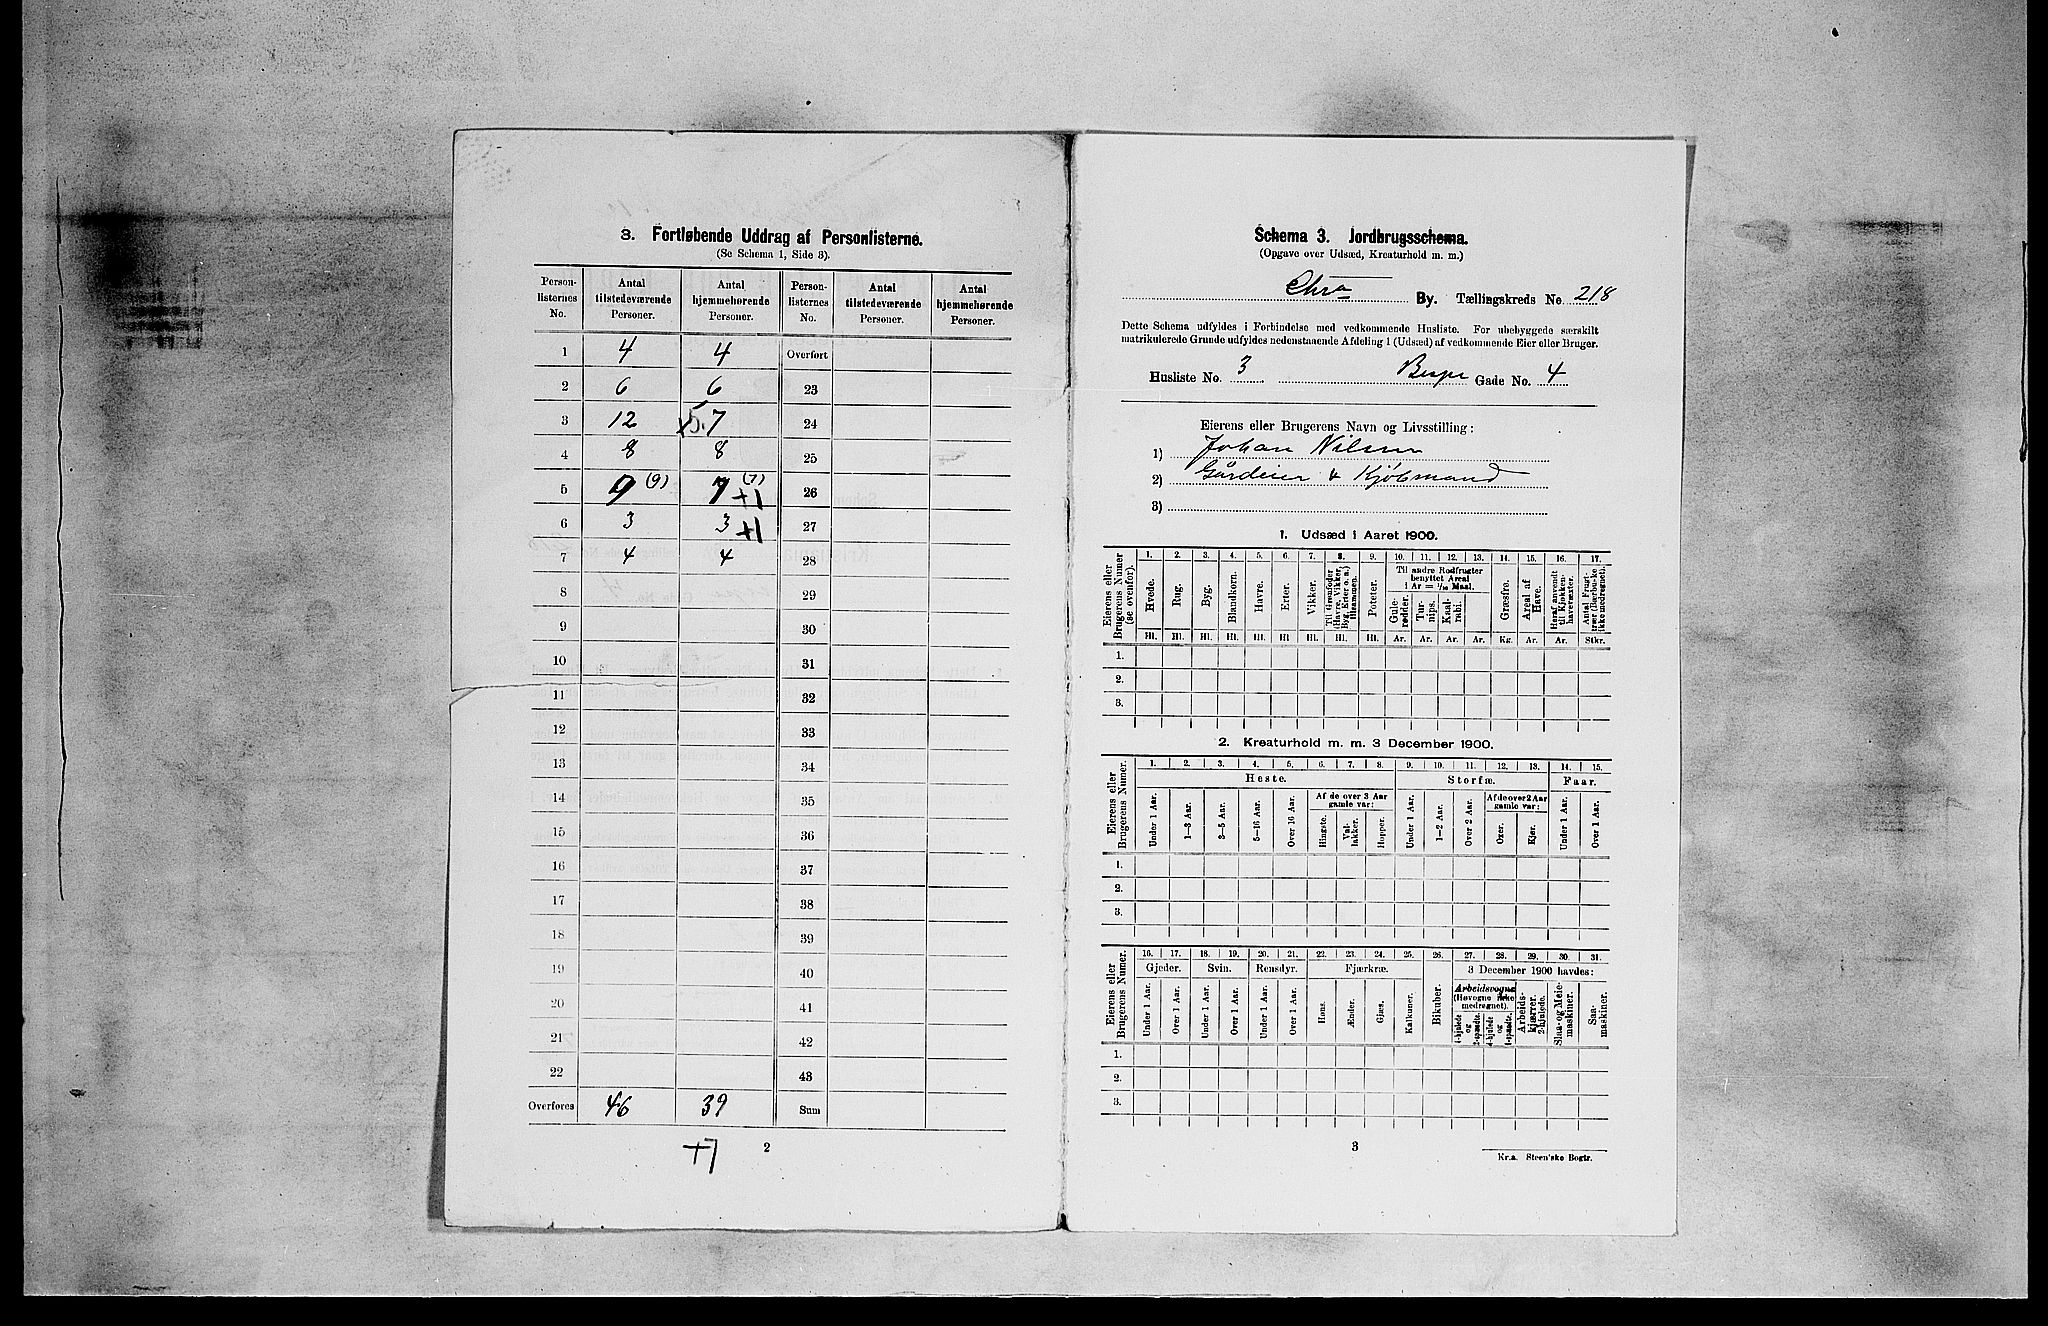 3. Fortløbende Uddrag af Personlisterne.
(Se Schema 1, Side 3).
Person-listernes No. | Antal tilstedeværende Personer. | Antal hjemmehørende Personer. | Person-listernes No. | Antal tilstedeværende Personer. | Antal hjemmehørende Personer.
1 | 4 | 4 | Overført
2 | 6 | 6 | 23
3 | 12 | x5.7 | 24
4 | 8 | 8 | 25
5 | 9 (9) | 7 (7) +1 | 26
6 | 3 | 3 +1 | 27
7 | 4 | 4 | 28
8 | 29
9 | 30
10 | 31
11 | 32
12 | 33
13 | 34
14 | 35
15 | 36
16 | 37
17 | 38
18 | 39
19 | 40
20 | 41
21 | 42
22 | 43
Overføres | 46 | 39 | Sum
+7
2
Schema 3. Jordbrugsschema.
(Opgave over Udsæd, Kreaturhold m. m.)
Chra By. Tællingskreds No. 218
Dette Schema udfyldes i Forbindelse med vedkommende Husliste. For ubebyggede særskilt
matrikulerede Grunde udfyldes nedenstaaende Afdeling 1 (Udsæd) af vedkommende Eier eller Bruger.
Husliste No. 3. Gade No. 4
Eierens eller Brugerens Navn og Livsstilling:
1) Johan Nilsen
2) Gårdeier & Kjøbmand
3)
1. Udsæd i Aaret 1900.
Eierens eller Brugerens Numer (se ovenfor).
1. 2. 3. 4. 5. 6. 7. 8. 9. 10. 11. 12. 13. 14. 15. 16. 17.
Hvede. Rug. Byg. Blandkorn. Havre. Erter. Vikker. Til Grønfoder (Havre, Vikker, Byg, Erter o. a.) tilsammen. Poteter.
Til andre Rodfrugter benyttet Areal i Ar = 1/10 Maal.
Gule-rødder. Tur-nips. Kaal-rabi.
Græsfrø. Areal af Have. Heraf anvendt til Kjøkken-havevæxter. Antal Frugt-trær (Bærbuske ikke medregnet).
Hl. Hl. Hl. Hl. Hl. Hl. Hl. Hl. Hl. Ar. Ar. Ar. Ar. Kg. Ar. Ar. Stkr.
1.
2.
3.
2. Kreaturhold m. m. 3 December 1900.
Eierens eller Brugerens Numer.
1. 2. 3. 4. 5. 6. 7. 8. 9. 10. 11. 12. 13. 14. 15.
Heste. Storfæ. Faar.
Af de over 3 Aar gamle var: Af de over 2 Aar gamle var:
Under 1 Aar. 1—3 Aar. 3—5 Aar. 5—16 Aar. Over 16 Aar. Hingste. Val-lakker. Hopper. Under 1 Aar. 1—2 Aar. Over 2 Aar. Oxer. Kjør. Under 1 Aar. Over 1 Aar.
1.
2.
3.
Eierens eller Brugerens Numer.
16. 17. 18. 19. 20. 21. 22. 23. 24. 25. 26. 27. 28. 29. 30. 31.
Gjeder. Svin. Rensdyr. Fjærkræ. 3 December 1900 havdes:
Under 1 Aar. Over 1 Aar. Under 1 Aar. Over 1 Aar. Under 1 Aar. Over 1 Aar. Høns. Ænder. Gjæs. Kalkuner. Bikuber.
Arbeidsvogne (Høvogne ikke medregnet).
4-hjulede og 2-spændte. 4-hjulede og 1-spændte. Arbeids-kjærrer, 2-hjulede. Slaa- og Meie-maskiner. Saa-maskiner.
1.
2.
3.
3
Kr.a. Steen'ske Bogtr.